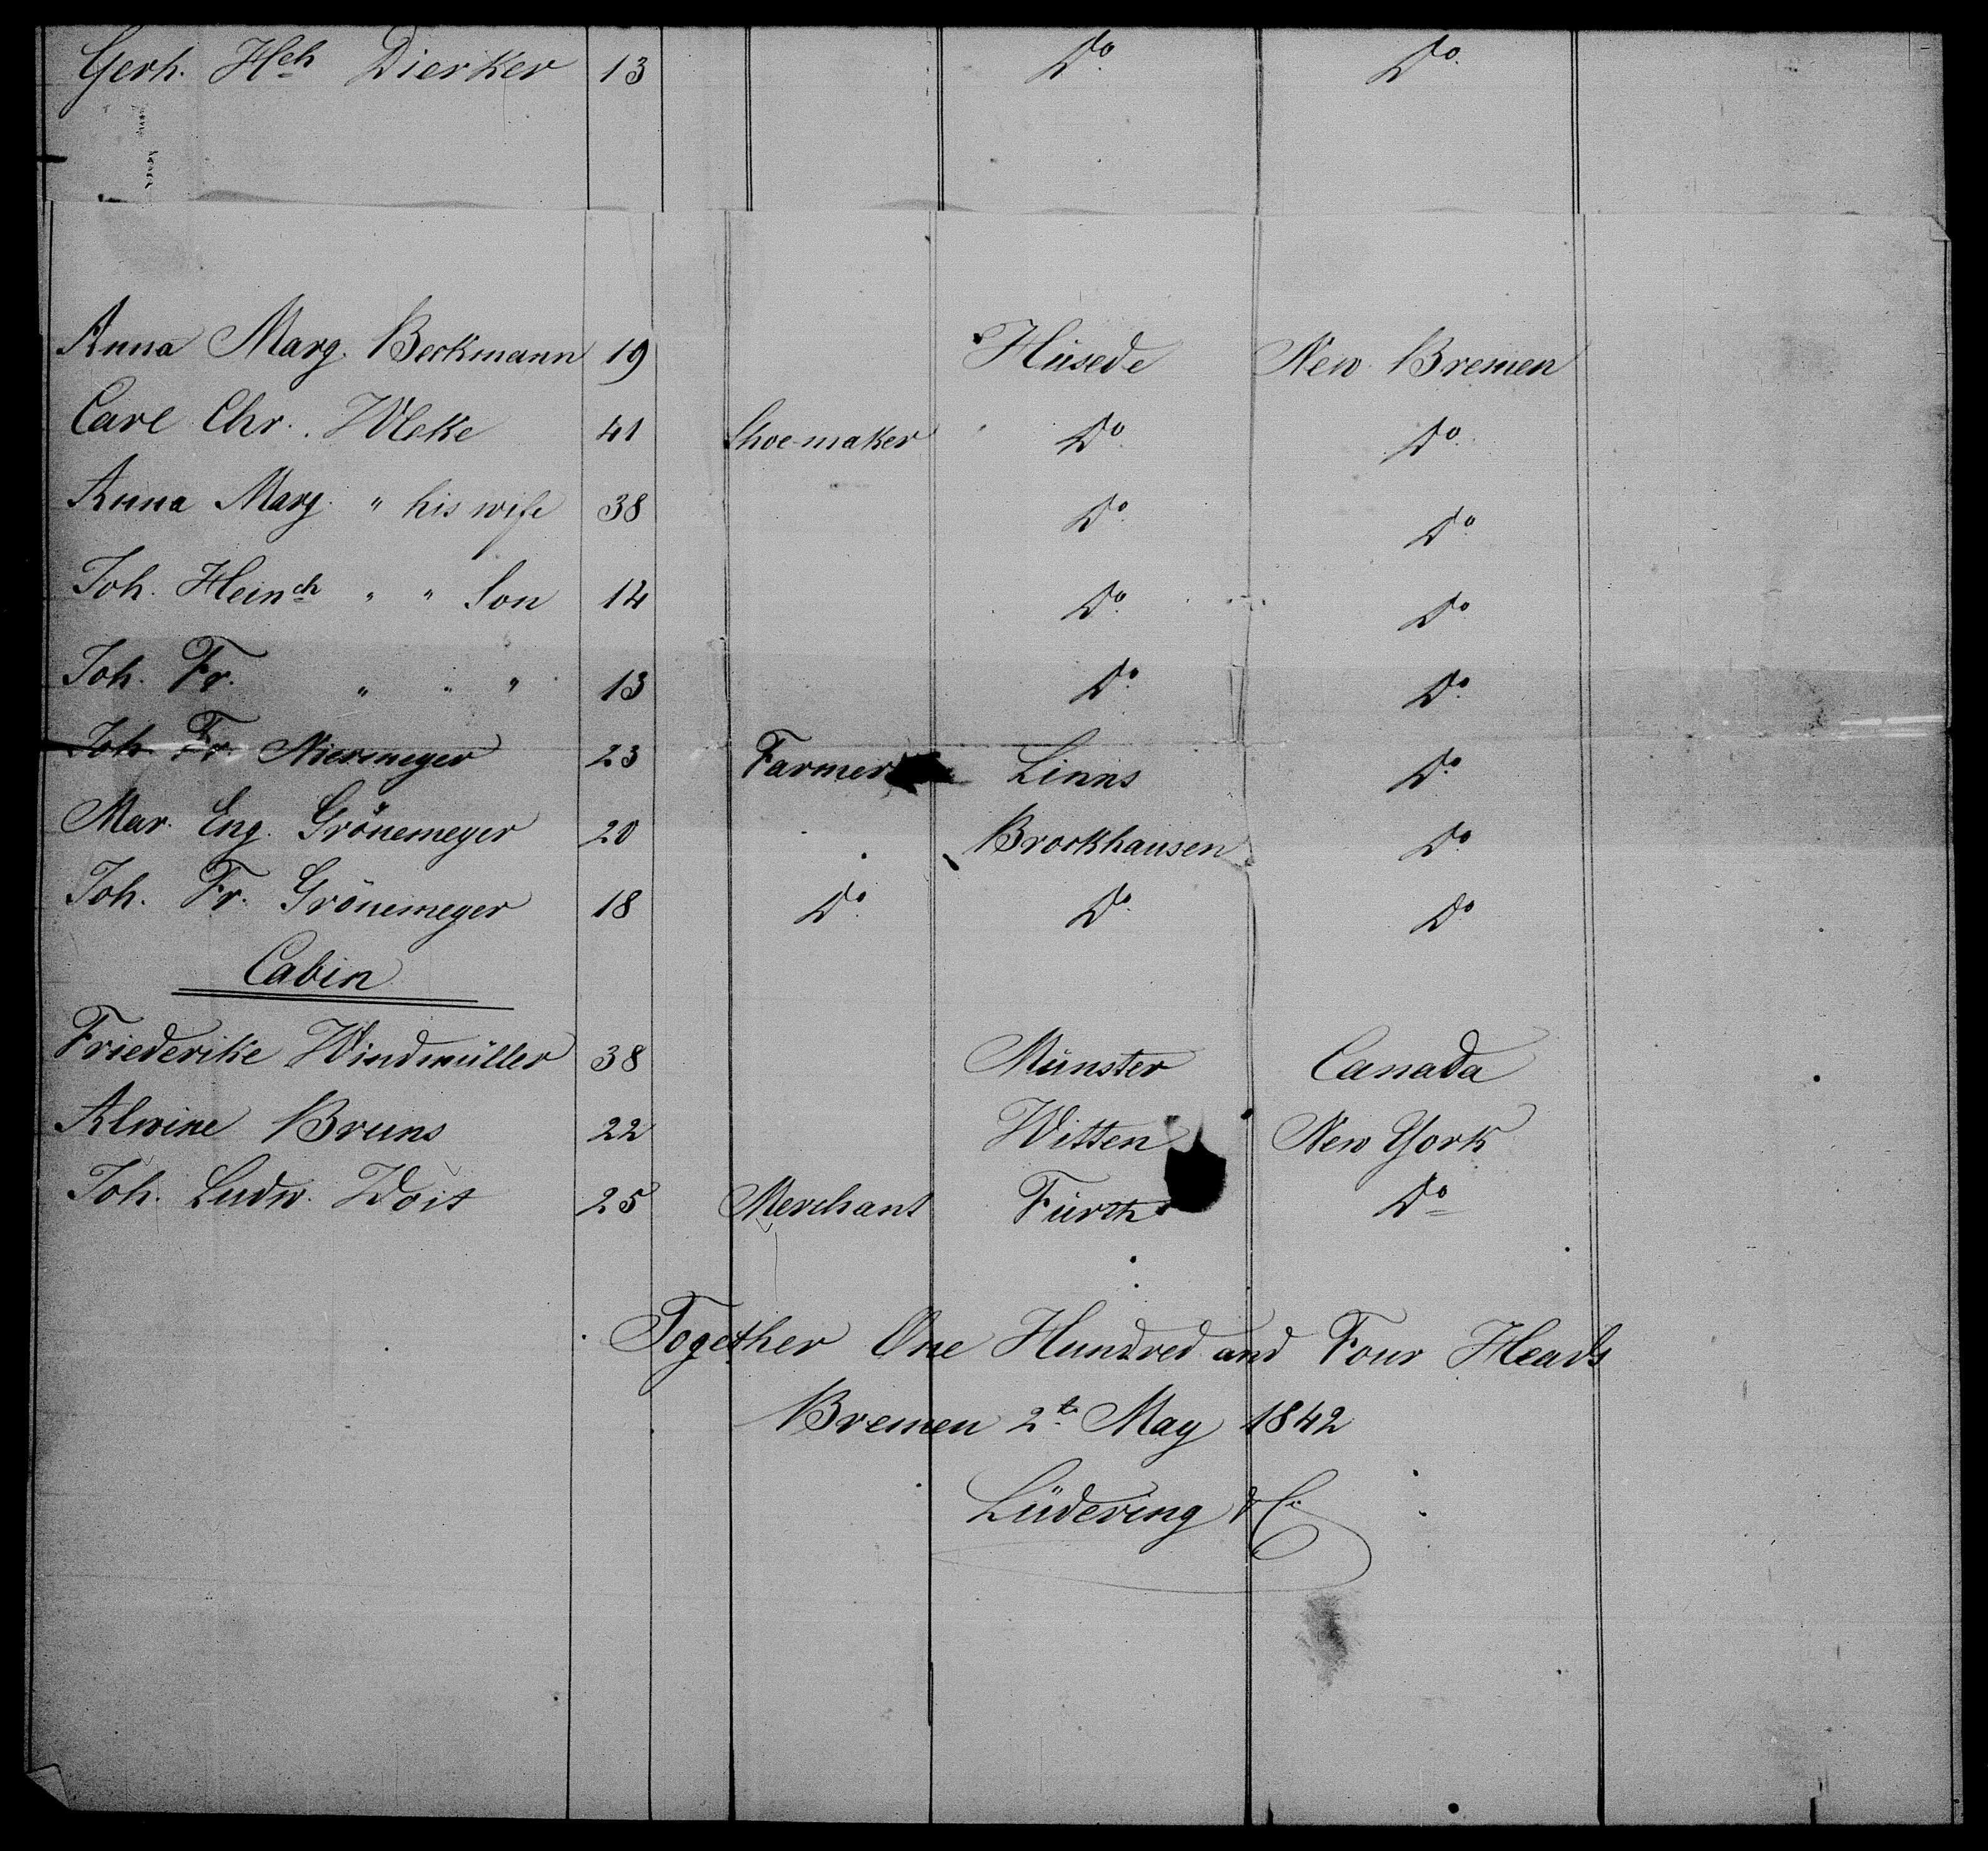 Gerh. Hch Dierker 13 Do. Do.
Anna Marg. Beckmann 19 Hüsede New Bremen
Carl Chr. Uleke 41 Shoe-maker Do. Do.
Anna Marg. " his wife 38 Do. Do.
Joh. Heinch " " Son 14 Do. Do
Joh. Fr. " " " 13 Do. Do.
Joh. Fr. Niermeyer 23 Farmer Linns Do.
Mar. Eng. Grönemeyer 20 Brockhausen Do.
Joh. Fr. Grönemeyer 18 Do. Do. Do
Cabin
Friederike Windmüller 38 Münster Canada
Alwine Bruns 22 Witten New York
Joh. Ludw. Woit 25 Merchant Fürth Do
Together One Hundred and Four Heads
Bremen 2t. May 1842
Lüdering & Co